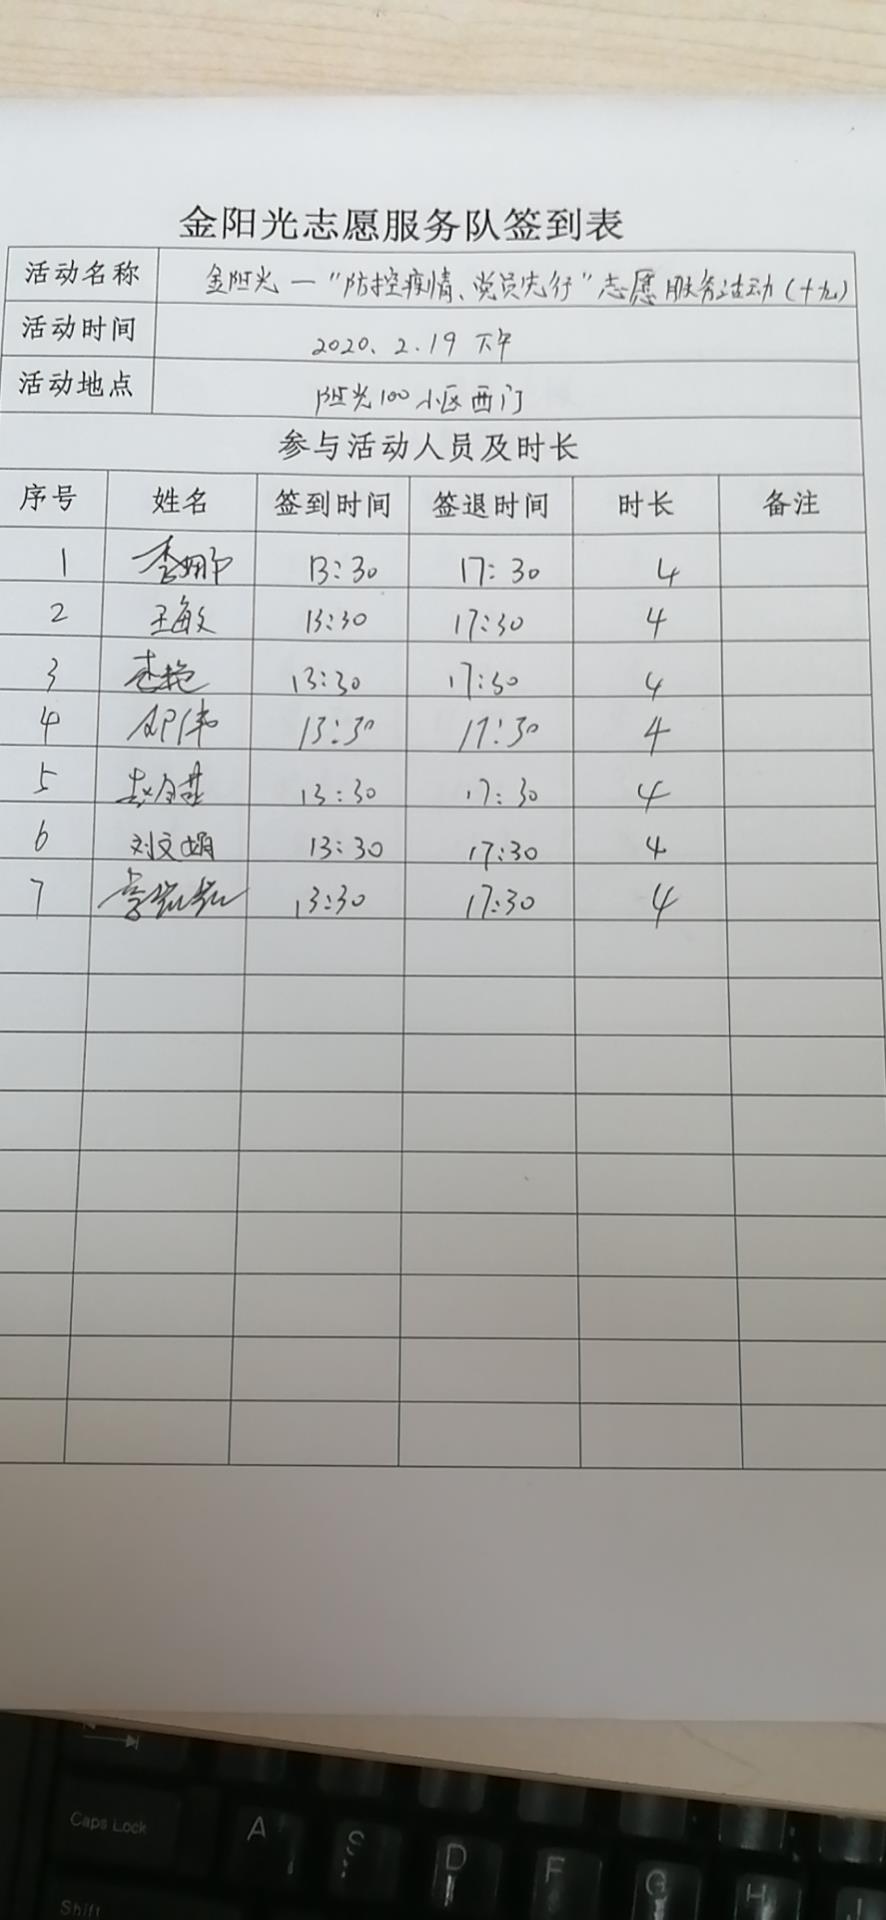 金阳光志愿服务队签到表
活动名称 金阳光—"防控疫情、党员先行"志愿服务活动(十九)
活动时间 2020.2.19 下午
活动地点 阳光100小区西门
参与活动人员及时长
序号 姓名 签到时间 签退时间 时长 备注
1 李娜 13:30 17:30 4
2 王敏 13:30 17:30 4
3 13:30 17:30 4
4 13:30 17:30 4
5 13:30 17:30 4
6 刘文娟 13:30 17:30 4
7 13:30 17:30 4
Caps Lock A S D F G H J
Shift